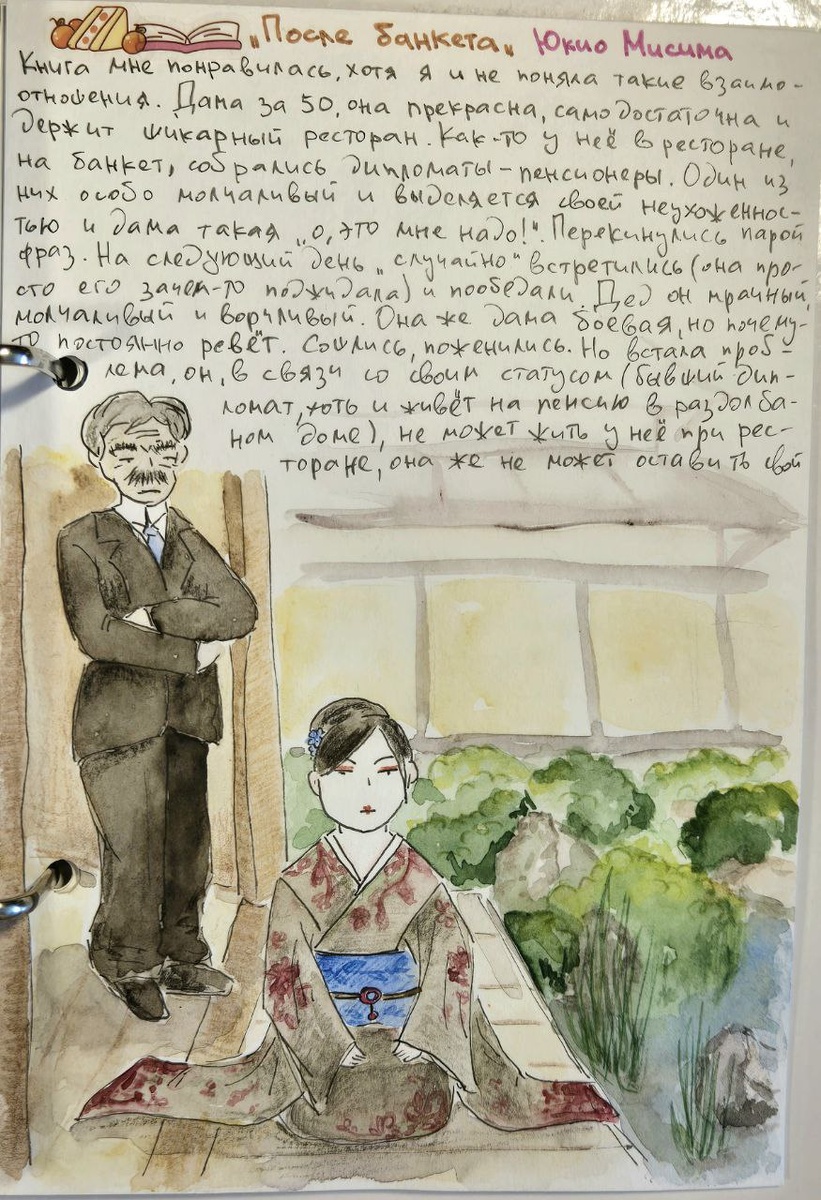 „После банкета„ Юкио Мисима
Книга мне понравилась, хотя я и не поняла такие взаимо-
отношения. Дама за 50, она прекрасна, самодостаточна и
держит шикарный ресторан. Как-то у неё в ресторане,
на банкет, собрались дипломаты-пенсионеры. Один из
них особо молчаливый и выделяется своей неухоженнос-
тью и дама такая „о, это мне надо!". Перекинулись парой
фраз. На следующий день „случайно" встретились (она про-
сто его зачем-то поджидала) и пообедали. Дед он мрачный,
молчаливый и ворчливый. Она же дама боевая, но почему-
то постоянно ревёт. Сошлись, поженились. Но встала проб-
лема, он, в связи со своим статусом (бывший дип-
ломат, хоть и живёт на пенсию в раздолба-
ном доме), не может жить у неё при рес-
торане, она же не может оставить свой